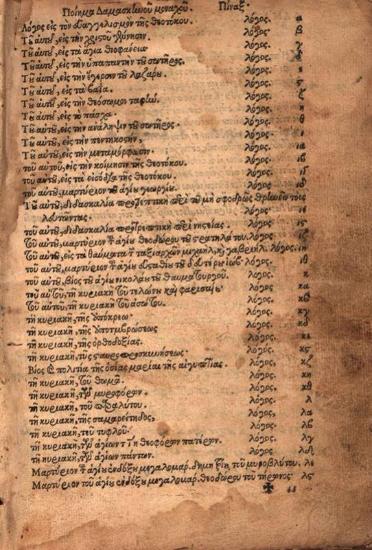 Ποίημα Δαμασκηνοῦ μοναχοῦ. Πίναξ
Λόγος εἰς τὸν Εὐαγγελισμὸν τῆς Θεοτόκου. λόγος. α
Τοῦ αὐτοῦ, εἰς τὴν χριστοῦ γέννησιν. λόγος. β
Τοῦ αὐτοῦ, εἰς τὰ ἅγια θεοφάνεια λόγος. γ
Τοῦ αὐτοῦ, εἰς τὴν ὑπαπαντὴν τοῦ σωτῆρος. λόγος.
Τοῦ αὐτοῦ, εἰς τὴν ἔγερσιν τοῦ λαζάρου. λόγος. ε
Τοῦ αὐτοῦ, εἰς τὰ βαΐα. λόγος.
Τοῦ αὐτοῦ, εἰς τὴν θεόσωμον ταφήν. λόγος. ζ
Τοῦ αὐτοῦ, εἰς τὸ πάσχα λόγος.
Τοῦ αὐτοῦ, εἰς τὴν ἀνάληψιν τοῦ σωτῆρος. λόγος. θ
Τοῦ αὐτοῦ, εἰς τὴν πεντηκοστήν. λόγος. ι
Τοῦ αὐτοῦ, εἰς τὴν μεταμόρφωσιν. λόγος. ια
τοῦ αὐτοῦ, εἰς τὴν κοίμησιν τῆς θεοτόκου. λόγος. ιβ
τοῦ αὐτοῦ, εἰς τὰ εἰσόδια τῆς θεοτόκου. λόγος. ιγ
τοῦ αὐτοῦ, μαρτύριον τοῦ ἁγίου γεωργίου. λόγος. ιδ
Τοῦ αὐτοῦ, διδασκαλία προτρεπτικὴ περὶ τοῦ μὴ σφοδρῶς θρηνεῖν τοὺς
τελευτῶντας. λόγος. ιε
τοῦ αὐτοῦ, διδασκαλία προτρεπτικὴ περὶ νηστείας. λόγος. ις
Τοῦ αὐτοῦ, μαρτύριον τοῦ ἁγίου Θεοδώρου τοῦ στρατηλάτου. λόγος ιζ
τοῦ αὐτοῦ, εἰς τὰ θαύματα τῶν ταξιαρχῶν μιχαὴλ, καὶ γαβριήλ. λόγος. ιη
τοῦ αὐτοῦ, μαρτύριον τοῦ ἁγίου λόγος. ιθ
τοῦ αὐτοῦ, βίος τοῦ ἁγίου νικολάου τοῦ θαυματουργοῦ. λόγος. κ
τοῦ αὐτοῦ, τῇ κυριακῇ τοῦ τελώνου καὶ φαρισαίου. λόγος κα
τοῦ αὐτοῦ, τῇ κυριακῇ τοῦ ἀσώτου. λόγος. κβ
τῇ κυριακῇ, τῆς ἀπόκρεω. λόγος. κγ
τῇ κυριακῇ, τῆς λόγος. κδ
τῇ κυριακῇ, τῆς ὀρθοδοξίας. λόγος. κε
τῇ κυριακῇ, τῆς σταυροπροσκυνήσεως. λόγος. κς
Βίος καὶ πολιτεία τῆς ὁσίας μαρίας τῆς αἰγυπτίας. λόγος. κζ
τῇ κυριακῇ, τοῦ θωμᾶ. λόγος. κη
τῇ κυριακῇ, τῶν μυροφόρων. λόγος. κθ
τῇ κυριακῇ, τοῦ παραλύτου. λόγος. λ
τῇ κυριακῇ, τῆς σαμαρείτιδος. λόγος. λα
τῇ κυριακῇ, τοῦ τυφλοῦ. λόγος. λβ
τῇ κυριακῇ, τῶν ἁγίων τιη θεοφόρων πατέρων. λόγος. λγ
τῇ κυριακῇ, τῶν ἁγίων πάντων. λόγος. λδ
Μαρτύριον τοῦ ἁγίου ἐνδόξου μεγαλομάρ. δημητρίου, τοῦ μυροβλύτου. λε
Μαρτύριον τοῦ ἁγίου ἐνδόξου μεγαλομάρ. Θεοδώρου τοῦ τήρωνος λς